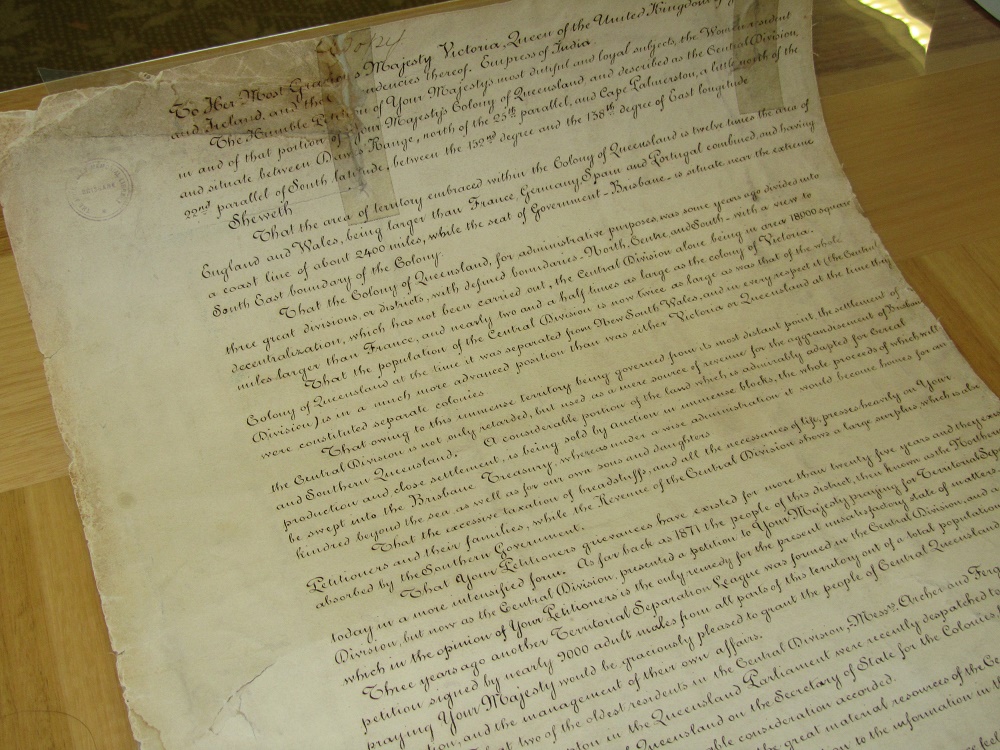 To Her Most Gracious Majesty Victoria, Queen of the United Kingdom of
and Ireland, and the dencies thereof. Empress of India.
The Humble Petition of Your Majesty's most dutiful and loyal subjects, the Women resident
in and of that portion of Your Majesty's Colony of Queensland and described as the Central Division,
and situate between Range, north of the 25th parallel, and Cape Palmerston, a little north of the
22nd parallel of South latitude, between the 132nd degree and the 138th degree of East longitude
Sheweth
That the area of territory embraced within the Colony of Queensland is twelve times the area of
England and Wales, being larger than France, Germany, Spain and Portugal combined, and having
a coast line of about 2400 miles, while the seat of Government - Brisbane - is situate near the extreme
South East boundary of the Colony.
That the Colony of Queensland, for administrative purposes, was some years ago divided into
three great divisions, or districts, with defined boundaries - North, Centre, and South - with a view to
decentralization, which has not been carried out, the Central Division alone being in area 18000 square
miles larger than France, and nearly two and a half times as large as the colony of Victoria.
That the population of the Central Division is now twice as large as was that of the whole
Colony of Queensland at the time it was separated from New South Wales, and in every respect it (the Central
Division) is in a much more advanced position than was either Victoria or Queensland at the time they
were constituted separate colonies.
That owing to this immense territory being governed from its most distant point, the settlement of
the Central Division is not only retarded, but used as a mere source of revenue for the aggrandisement of Brisbane
and Southern Queensland. A considerable portion of the land which is admirably adapted for cereal
production and close settlement, is being sold by auction in immense blocks, the whole proceeds of which will
be swept into the Brisbane Treasury, whereas under a wise administration it would become homes for our
kindred beyond the sea, as well as for our own sons and daughters
That the excessive taxation of breadstuffs, and all the necessaries of life, presses heavily on Your
Petitioners and their families, while the Revenue of the Central Division shows a large surplus, which is also
absorbed by the Southern Government.
That Your Petitioners grievances have existed for more than twenty five years and they exist
today in a more intensified form. As far back as 1871 the people of this district, then known as the Northern
Division, but now as the Central Division, presented a petition to Your Majesty praying for Territorial Sep
which in the opinion of Your Petitioners is the only remedy for the present unsatisfactory state of matters
Three years ago another Territorial Separation League was formed in the Central Division, and a
petition signed by nearly 9000 adult males from all parts of this territory out of a total population
praying Your Majesty would be graciously pleased to grant the people of Central Queensland
tion, and the management of their own affairs.
That two of the oldest residents in the Central Division, Messrs. Archer and Ferg
ton in the Queensland Parliament were recently despatched to
Queensland on the Secretary of State for the Colonies
able consideration accorded.
the great material resources of the Ce
to the information in th